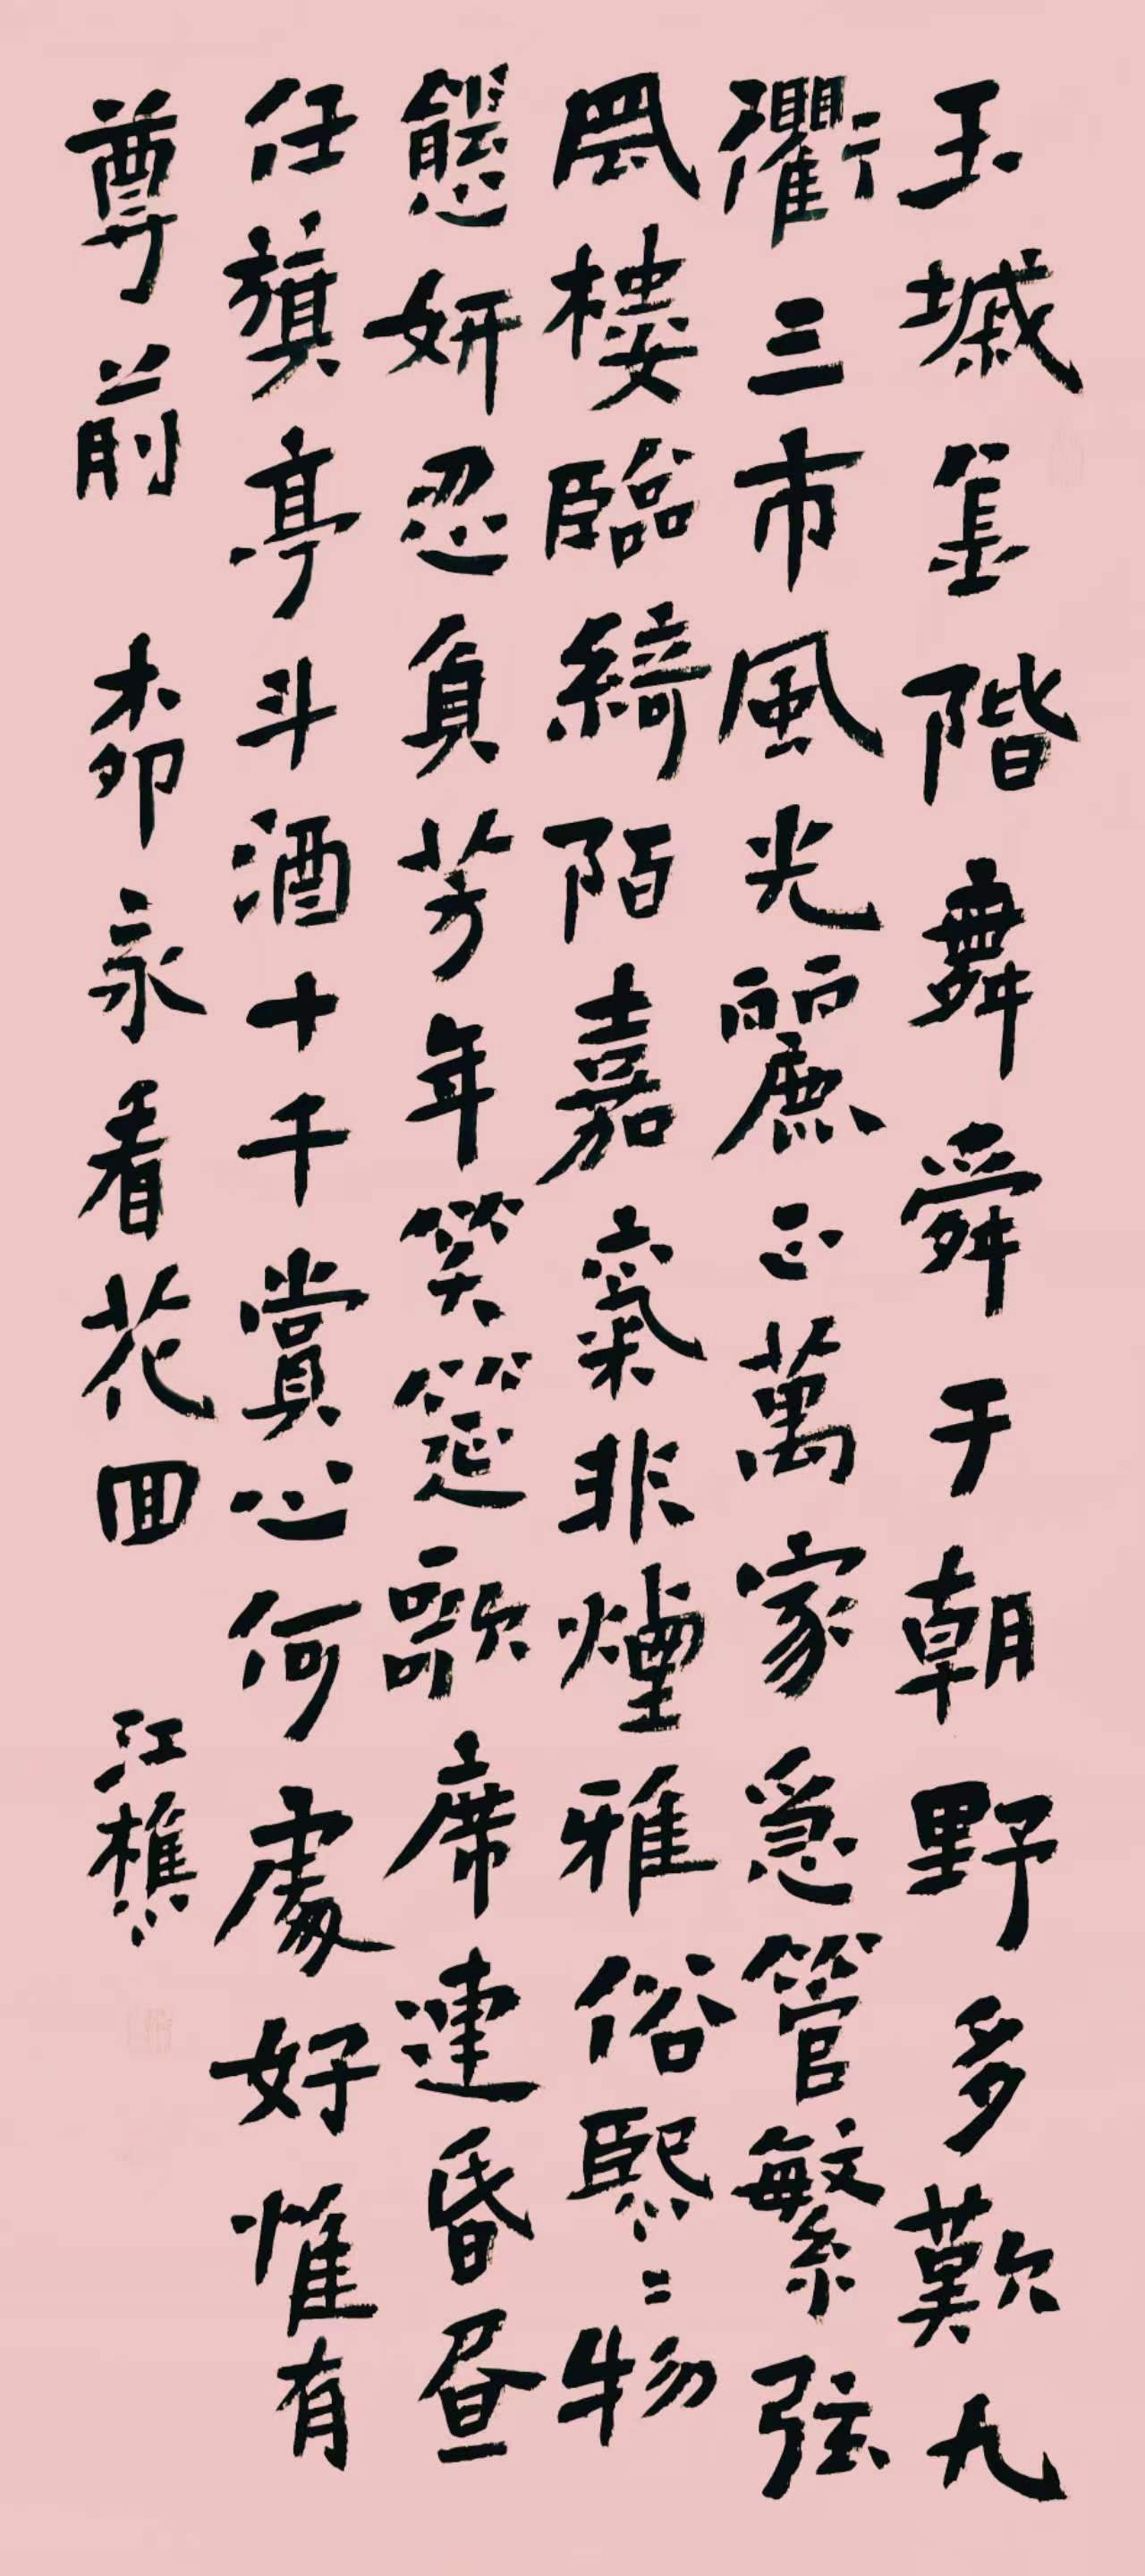 玉墄金階舞舜干朝野多歎九
衢三市風光麗正萬家急管繁弦
鳳樓臨綺陌嘉氣非煙雅俗熙〻物
態妍忍負芳年笑筵歌席連昏昼
任旗亭斗酒十千賞心何處好惟有
尊前 柳永看花回 江樵